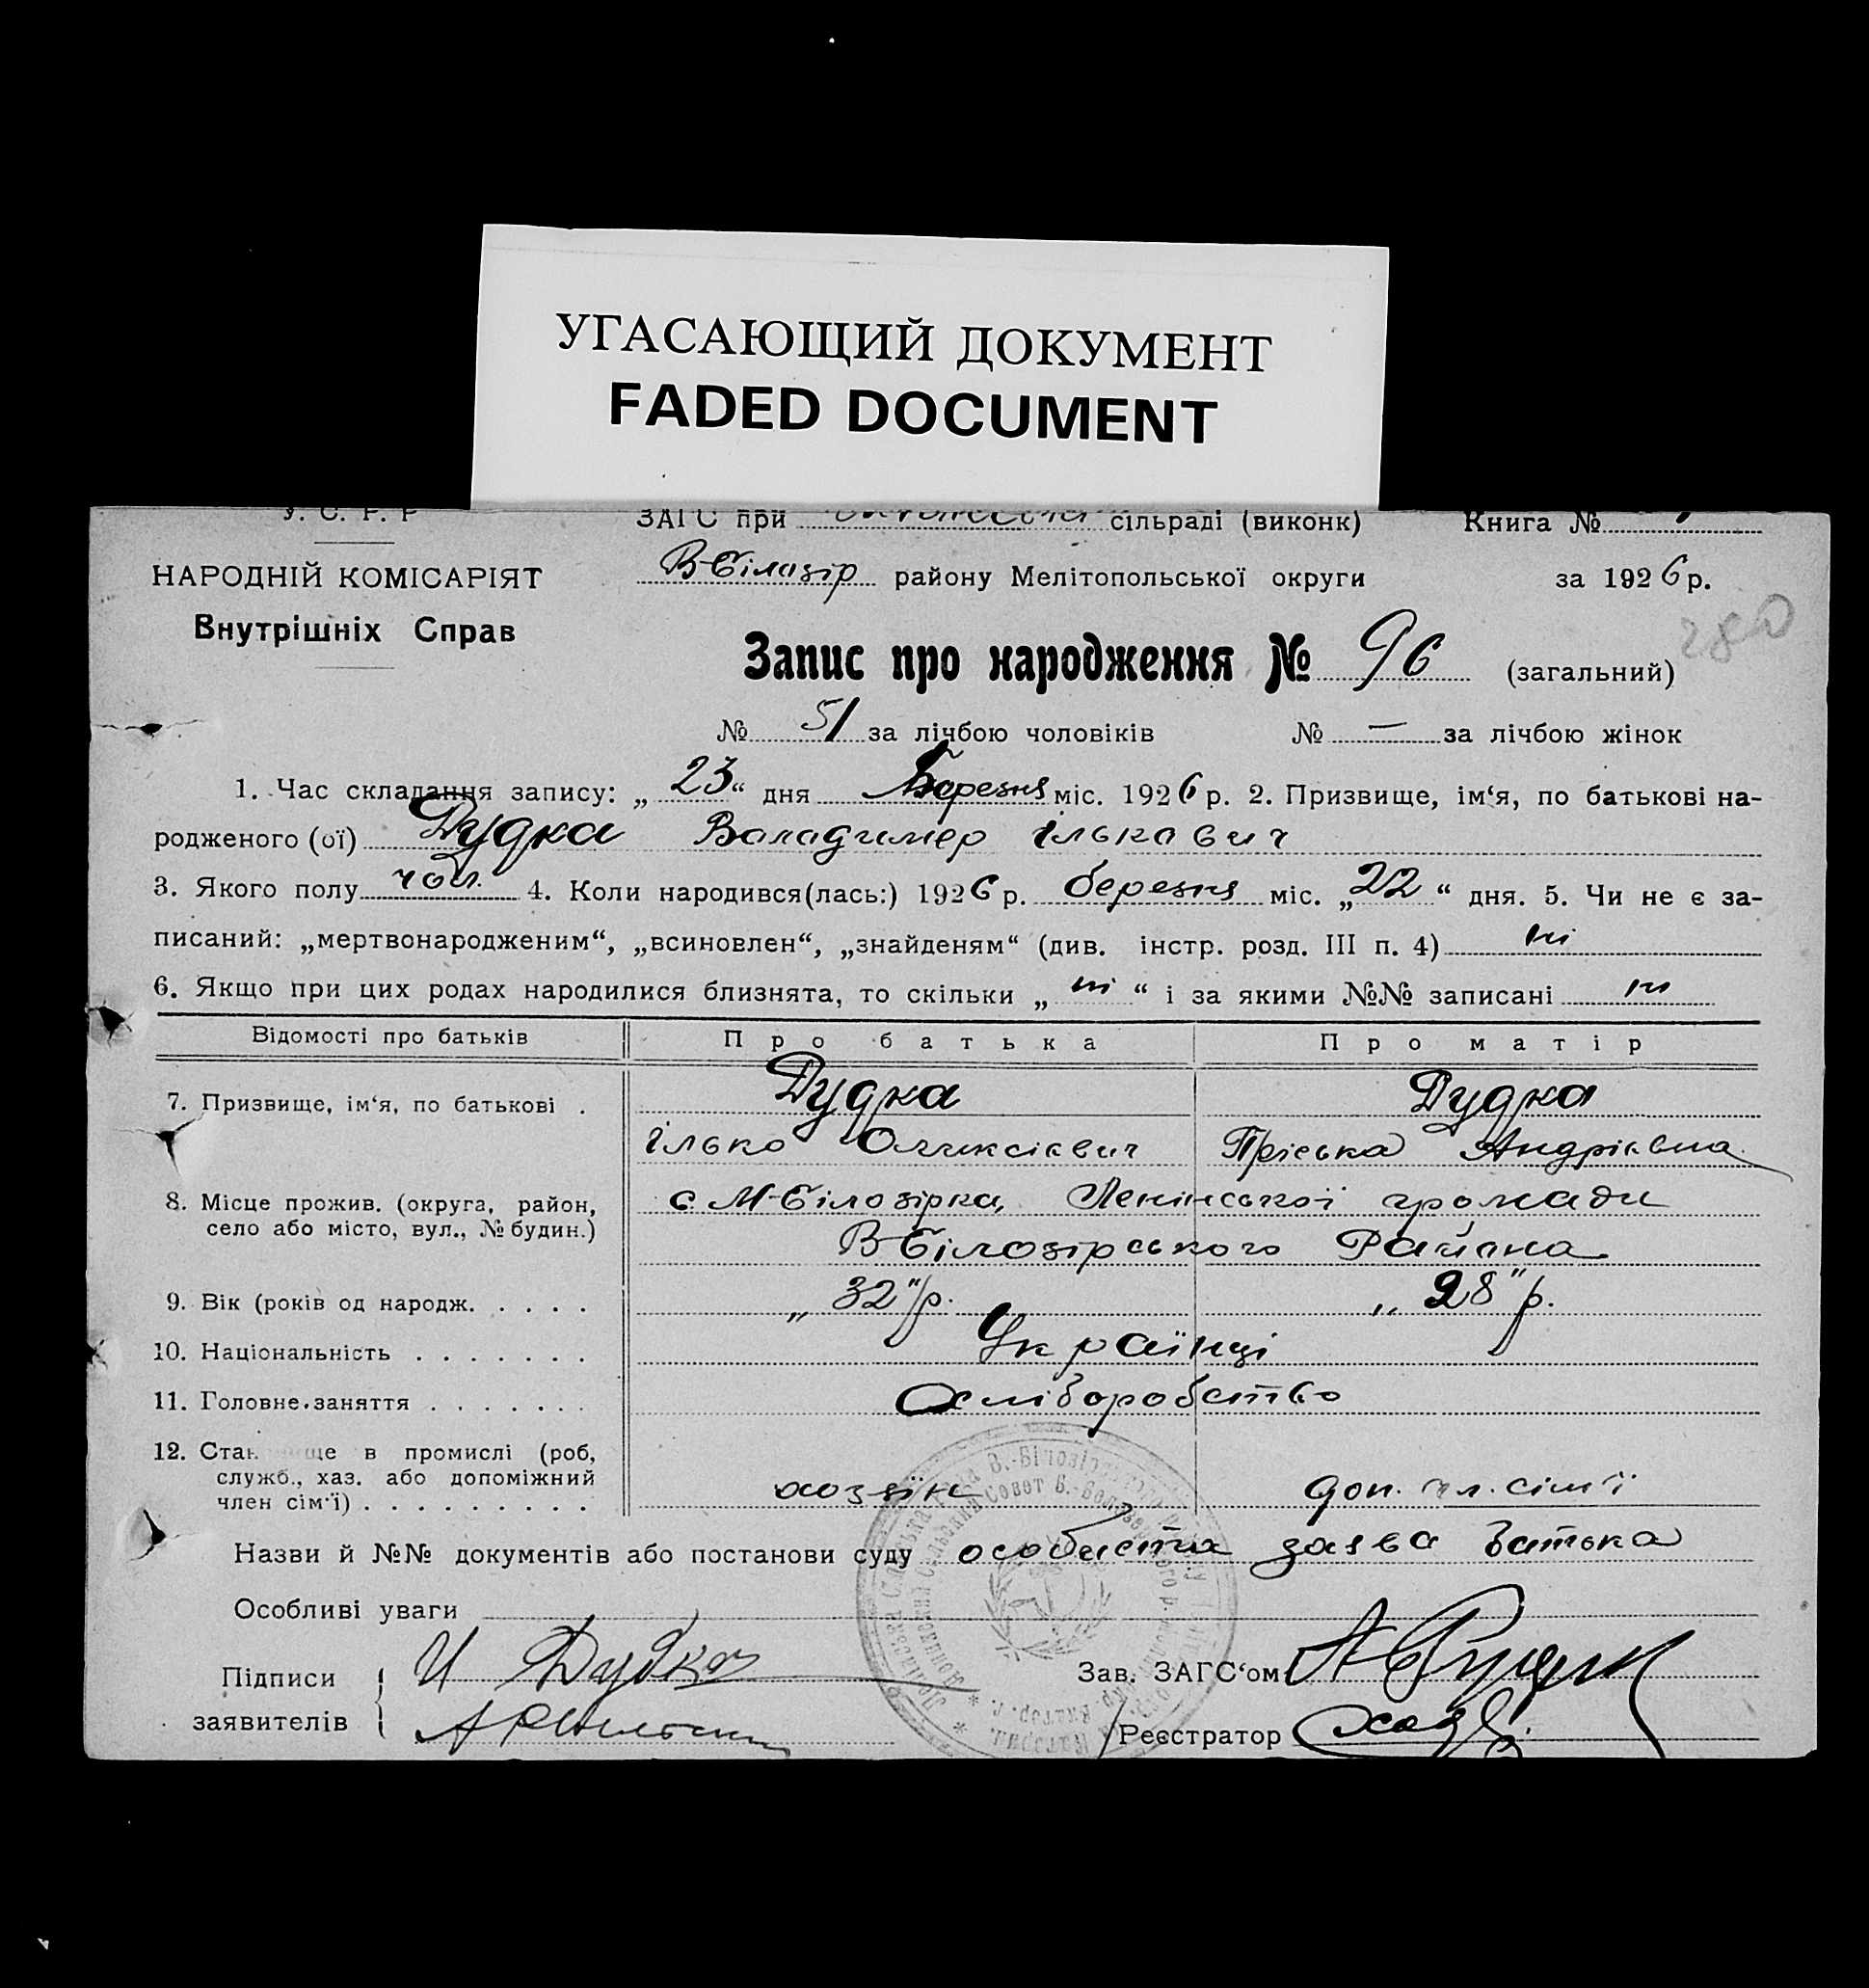 УГАСАЮЩИЙ ДОКУМЕНТ
FADED DOCUMENT
У. С. Р. Р
ЗАГС при сільраді (виконк) Книга №
НАРОДНІЙ КОМІСАРІЯТ
Внутрішніх Справ
В-Білозір району Мелітопольської округи за 1926 р.
280
Запис про народження № 96 (загальний)
№ 51 за лічбою чоловіків № — за лічбою жінок
1. Час складання запису: „23“ дня Березня міс. 1926 р. 2. Призвище, ім‘я, по батькові на-
родженого (ої) Дудка Валадимер Ількавич
3. Якого полу чол. 4. Коли народився(лась:) 1926 р. березня міс. „22“ дня. 5. Чи не є за-
писаний: „мертвонародженим“, „всиновлен“, „знайденям“ (див. інстр. розд. III п. 4) ні
6. Якщо при цих родах народилися близнята, то скільки „ні“ і за якими №№ записані ні
Відомості про батьків Про батька Про матір
7. Призвище, ім‘я, по батькові . Дудка Дудка
Ілько Оликсієвич Пріська Андріївна
8. Місце прожив. (округа, район, с М-Білозірка, Ленінської громади
село або місто, вул., № будин.) В Білозірського Района
9. Вік (років од народж. . . . . „32“ р. „28“ р.
10. Національність . . . . . . . Українці
11. Головне заняття . . . . . . . Хліборобство
12. Ста ще в промислі (роб,
служб., хаз. або допоміжний хозяїн доп. чл. сім'ї
член сім'ї) . . . . . . . . .
Назви й №№ документів або постанови суду особиста заява батька
Особливі уваги
Підписи И Дудка Зав. ЗАГС‘ом
заявителів Реєстратор